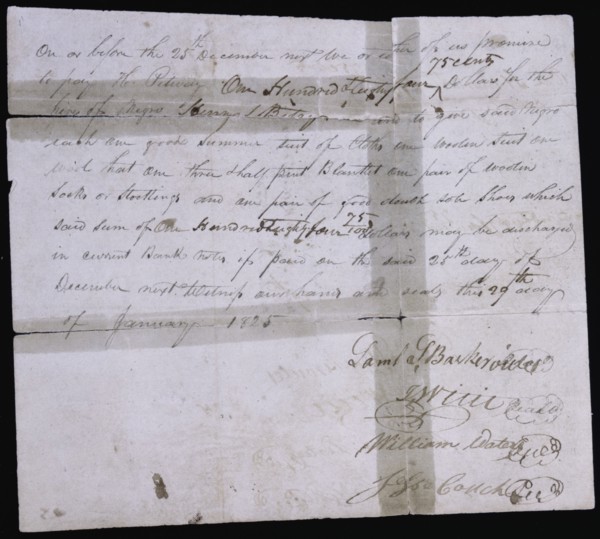 On or before the 25th December next we or either of us promise
to pay Petway One Hundred & Eighty four 75 cents Dollars for the
hire of Negro Henry & Betsy and to give said Negro
each one good summer suit of Cloths one woolen suit one
wool hat one three & half point Blanket one pair of woolen
socks or stockings and one pair of good double sole shoes which
said sum of One Hundred & Eighty four 75/100 dollars may be discharged
in current Bank notes if paid on the said 25th day of
December next Witness our hands and seals this 29th day
of January 1825
Saml
William Waters
Couch